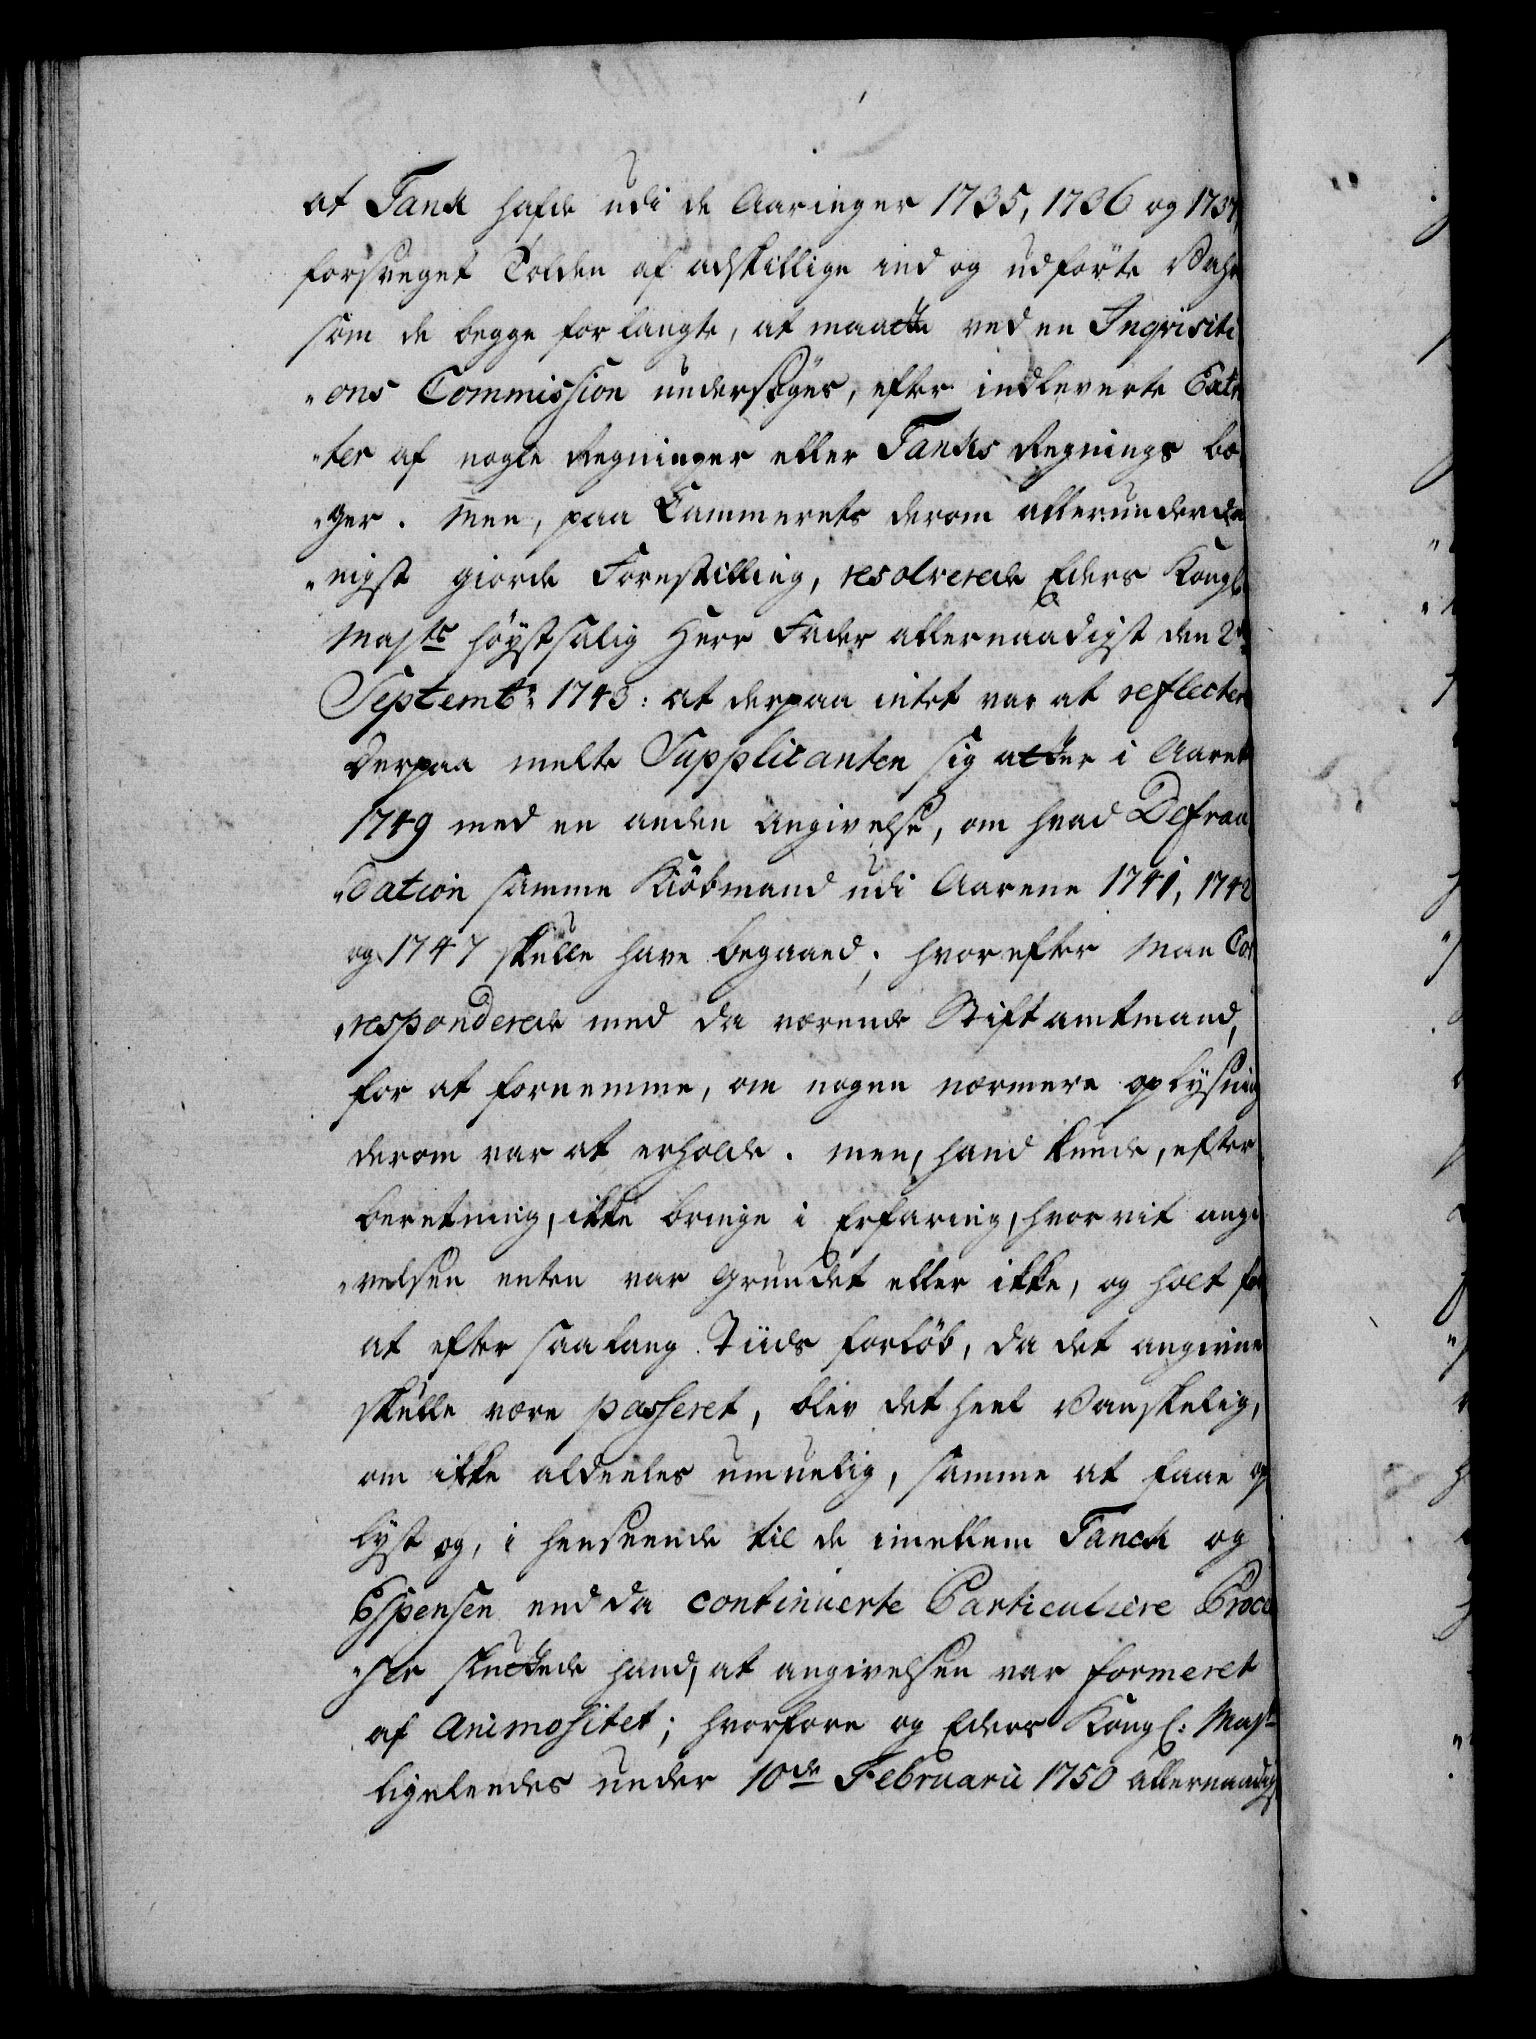 at Tank hafde udi de Aaringer 1735, 1736 og 1737,
forsveget Tolden af adskillige ind og udførte Vahre
som de begge forlangte, at maatte ved en Inqvisiti
"ons Commission undersøges, efter indleverte Extr
"ter af nogle Regninger eller Tanks Regnings bø
"ger. Men, paa Cammerets derom allerunderda
"nigst giorde Forestilling, resolverede Eders Kongl
Majts høystsalig Herr Fader allernaadigst den 2de
Septembr 1743: at derpaa intet var at reflectere
Derpaa melte Supplicanten sig atter i Aaret
1749 med en anden Angivelse, om hvad Defrau
"dation samme Kiøbmand udi Aarene 1741, 1742
og 1747 skulle have begaaed; hvorefter Man Cor
"responderede med da værende Stiftamtmand,
for at fornemme, om nogen nærmere oplysning
derom var at erholde. men, hand kunde, efter
beretning, ikke bringe i Erfaring, hvorvit angi
"velsen enten var grundet eller ikke, og holt for
at efter saa lang Tiids forløb, da det angivne
skulle være passeret, blev det heel Vanskelig,
om ikke aldeeles umuelig, samme at faae op
lyst og, i henseende til de imellem Tanck og
Espensen endda continuerte Particuliere Proce
"sser sluttede hand, at angivelsen var formeret
af Animositet; hvorfore og Eders Kongl: Majt
ligeleedes under 10de Februarii 1750 allernaadigst